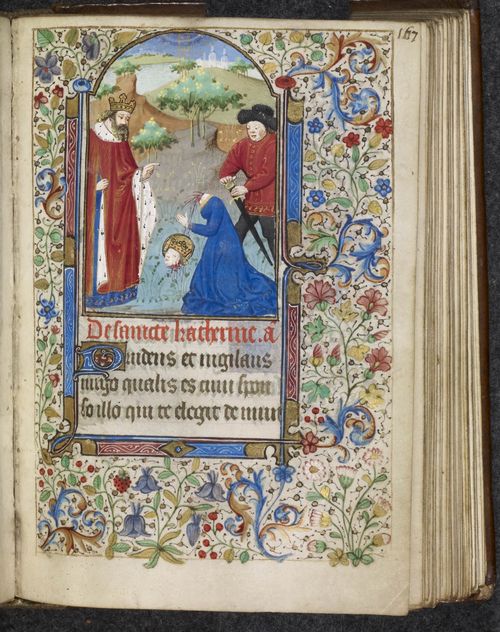 167
De sancte katherine. a
Prudens et vigilans
virgo qualis es cum spon
so illo qui te elegit de mun